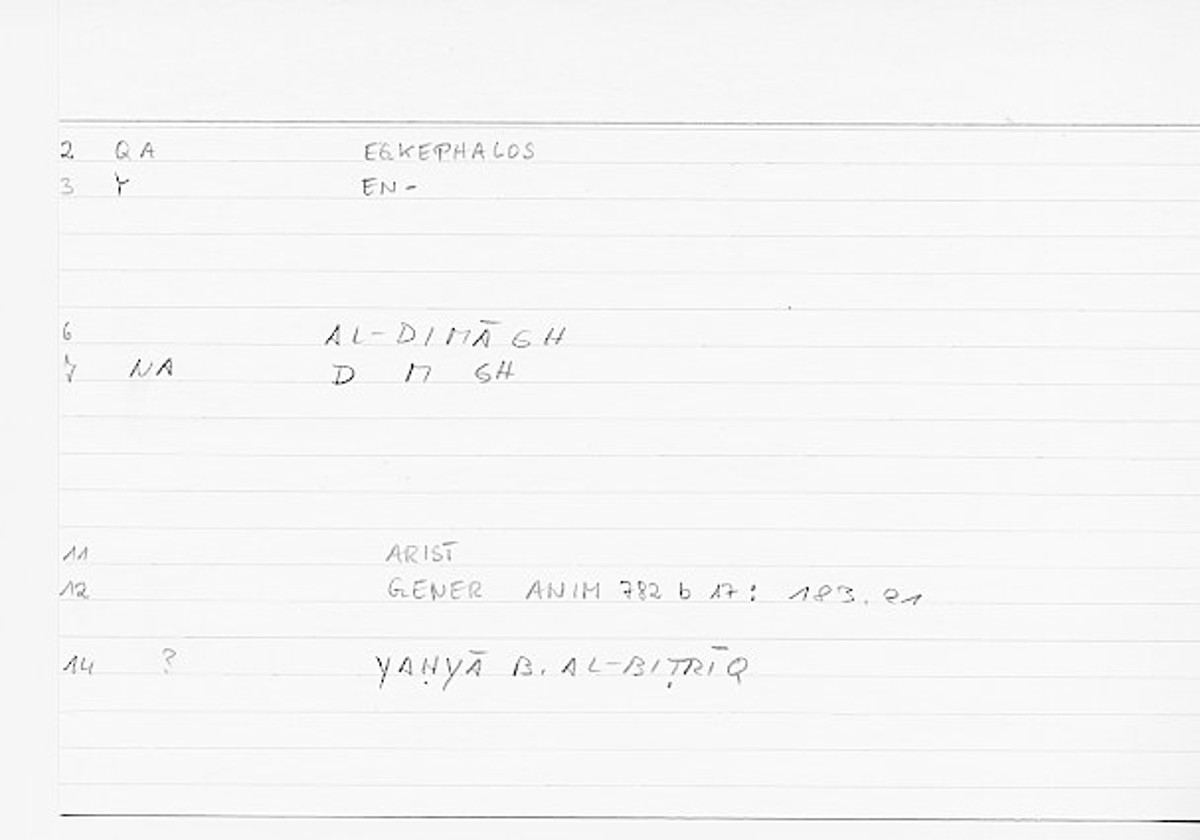 2 QA EGKEPHALOS
3 Y EN-
6 AL-DIMĀGH
7 NA D M GH
11 ARIST
12 GENER ANIM 782 b 17: 183.21
14 ? YAḤYĀ B. AL-BIṬRĪQ